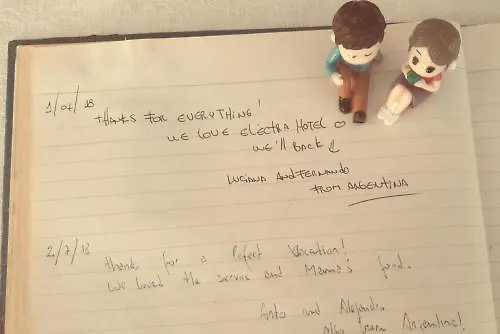 1/07/18
THANKS FOR EVERYTHING!
WE LOVE ELECTRA HOTEL
WE'LL BACK
LUCIANA AND FERNANDO
FROM ARGENTINA
2/7/18
Thanks for a Perfect Vacation!
We loved the service and Mamma's food.
Anto and Alejandra
also from Argentina!